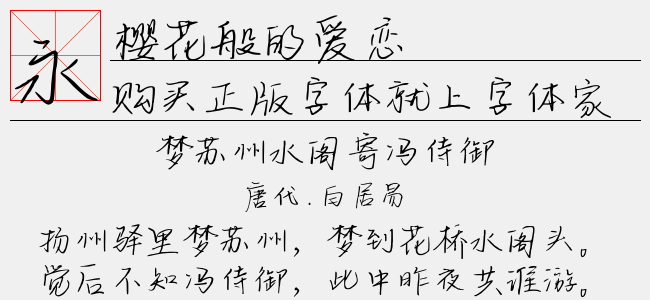 永
樱花般的爱恋
购买正版字体就上字体家
梦苏州水阁寄冯侍御
唐代.白居易
扬州驿里梦苏州，梦到花桥水阁头。
觉后不知冯侍御，此中昨夜共谁游。